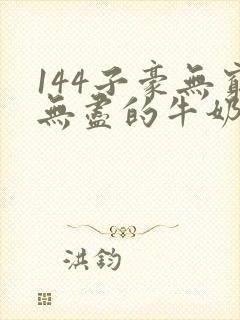 144子豪無窮
無盡的牛奶
洪鈞